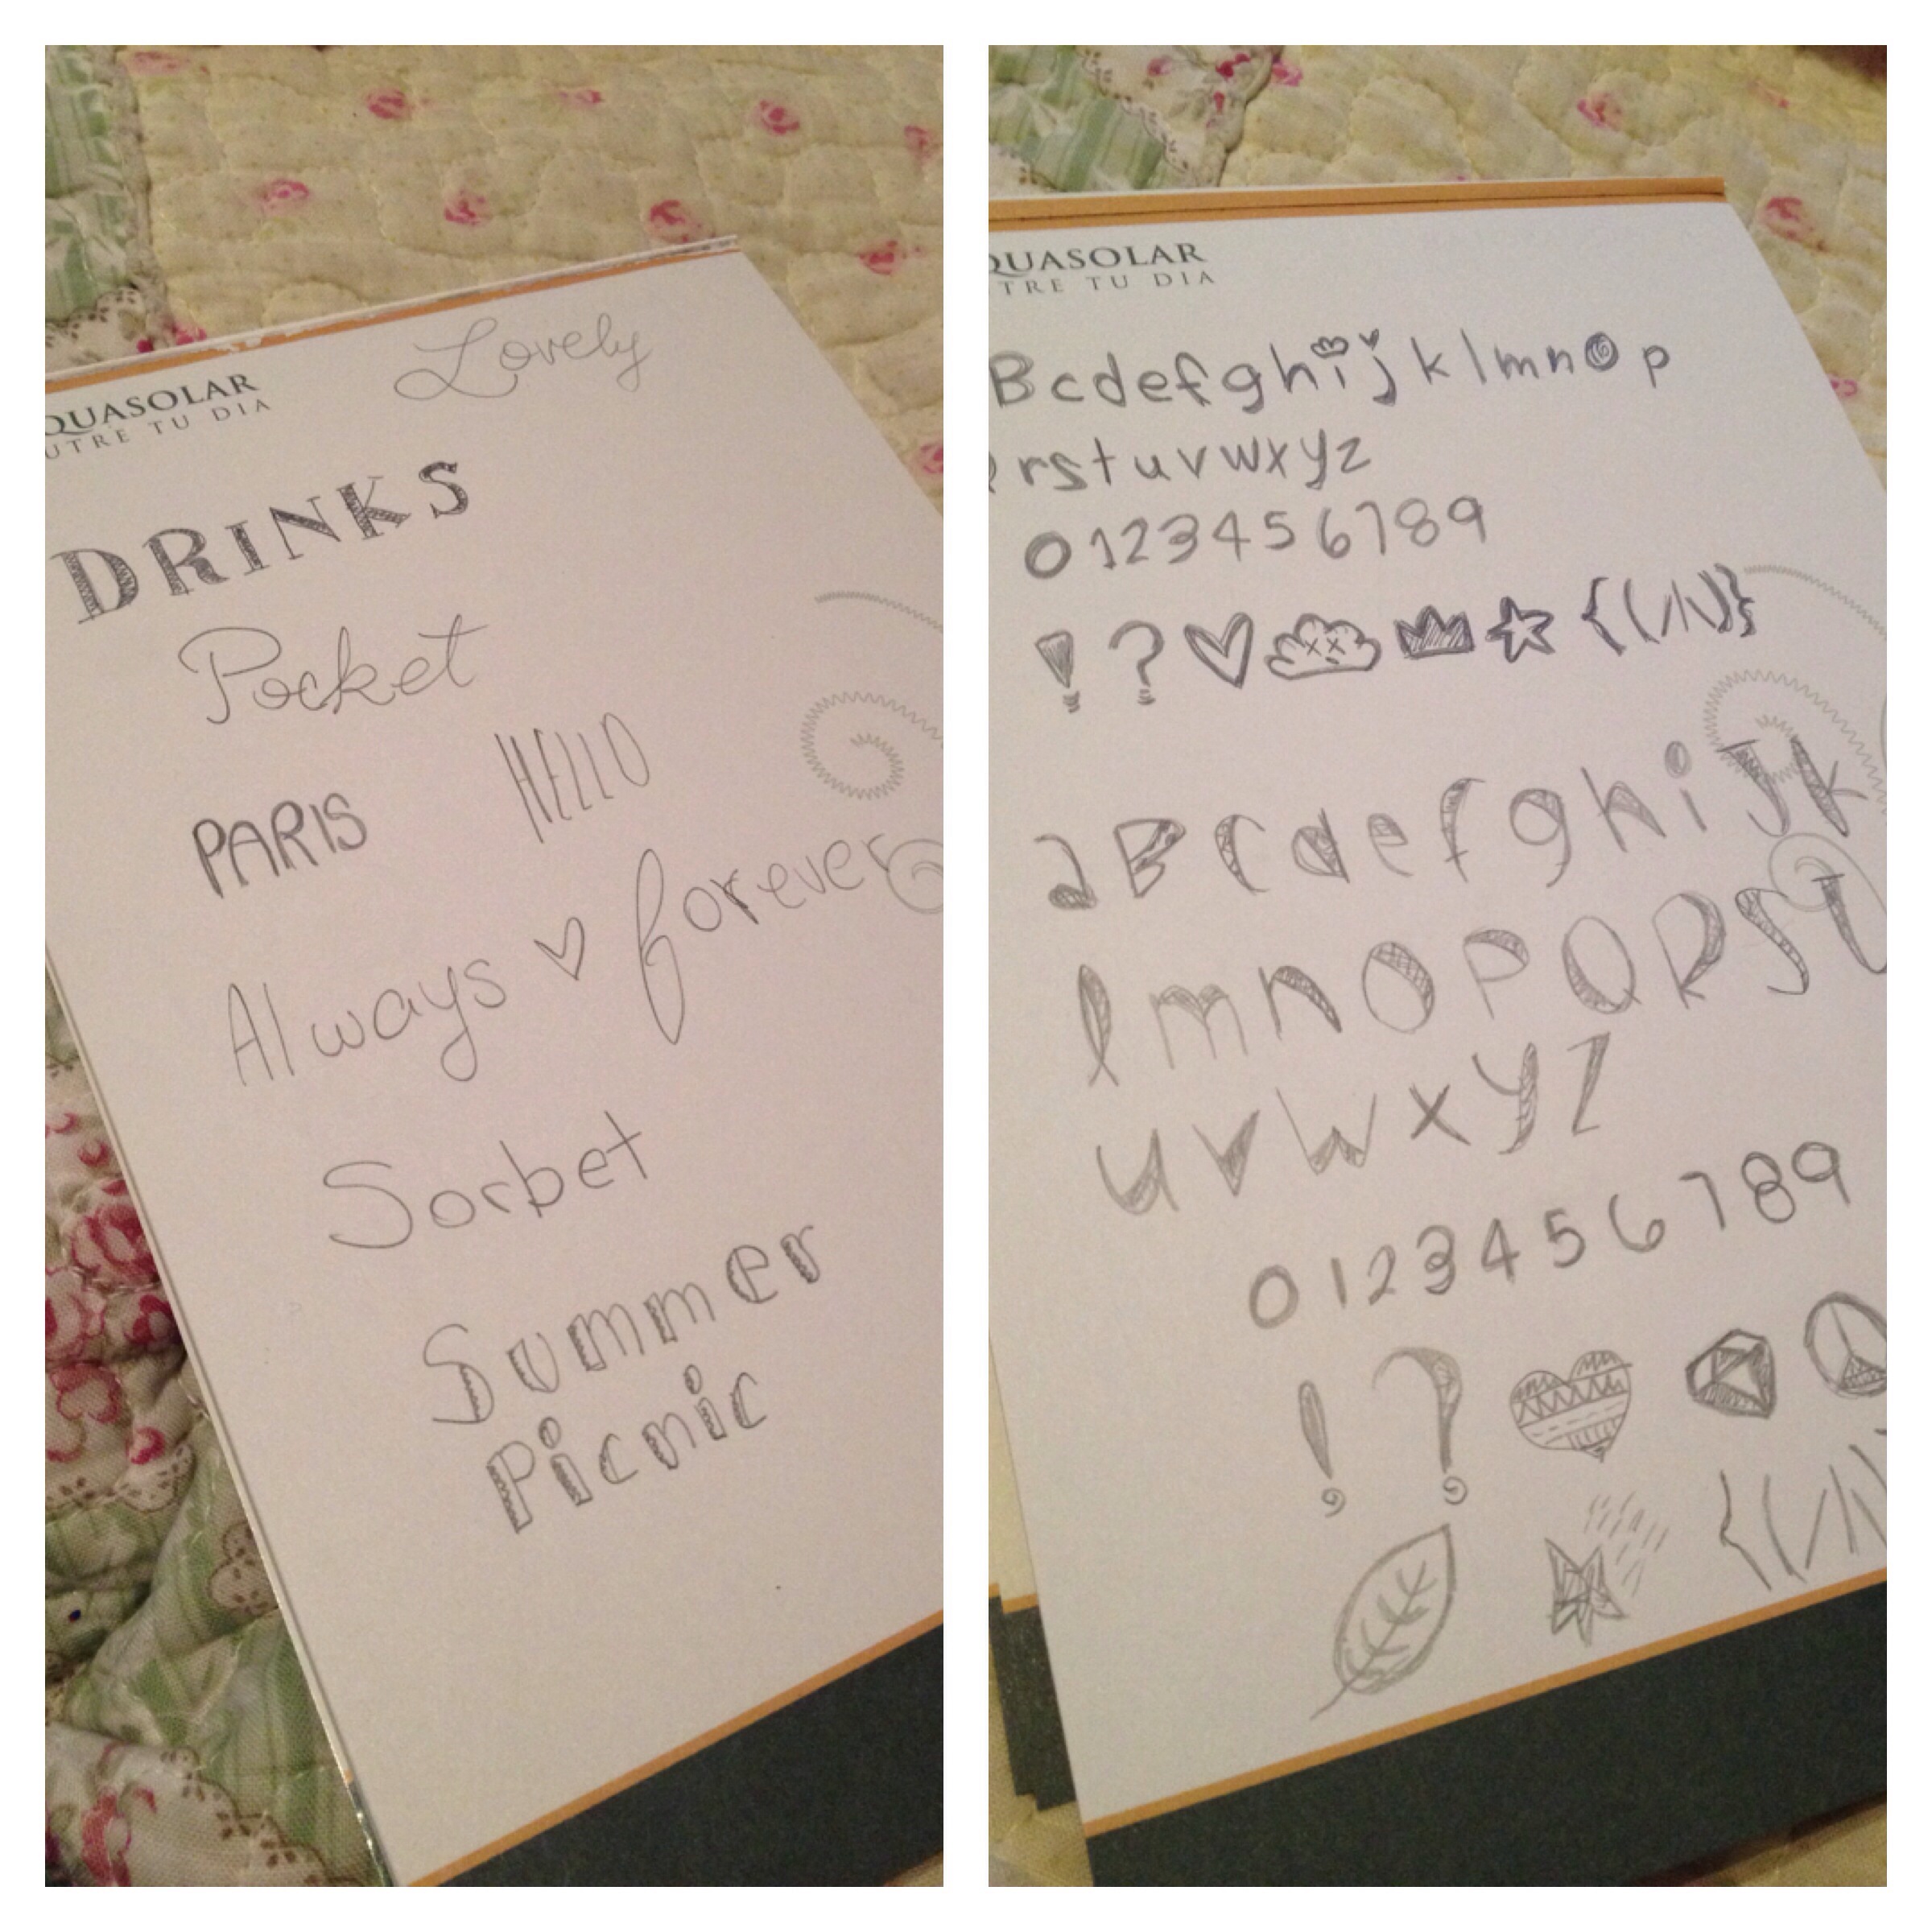 Lovely
QUASOLAR
UTRE TU DIA
DRINKS
Pocket
PARIS HELLO
Always ♡ forever
Sorbet
Summer
Picnic
QUASOLAR
TRE TU DIA
Bcdefghijklmnop
rstuvwxyz
0123456789
!?♡☆{(/|\)}
aBcdefghijk
lmnopQRST
uvwxyz
0123456789
!?
{(/|\)